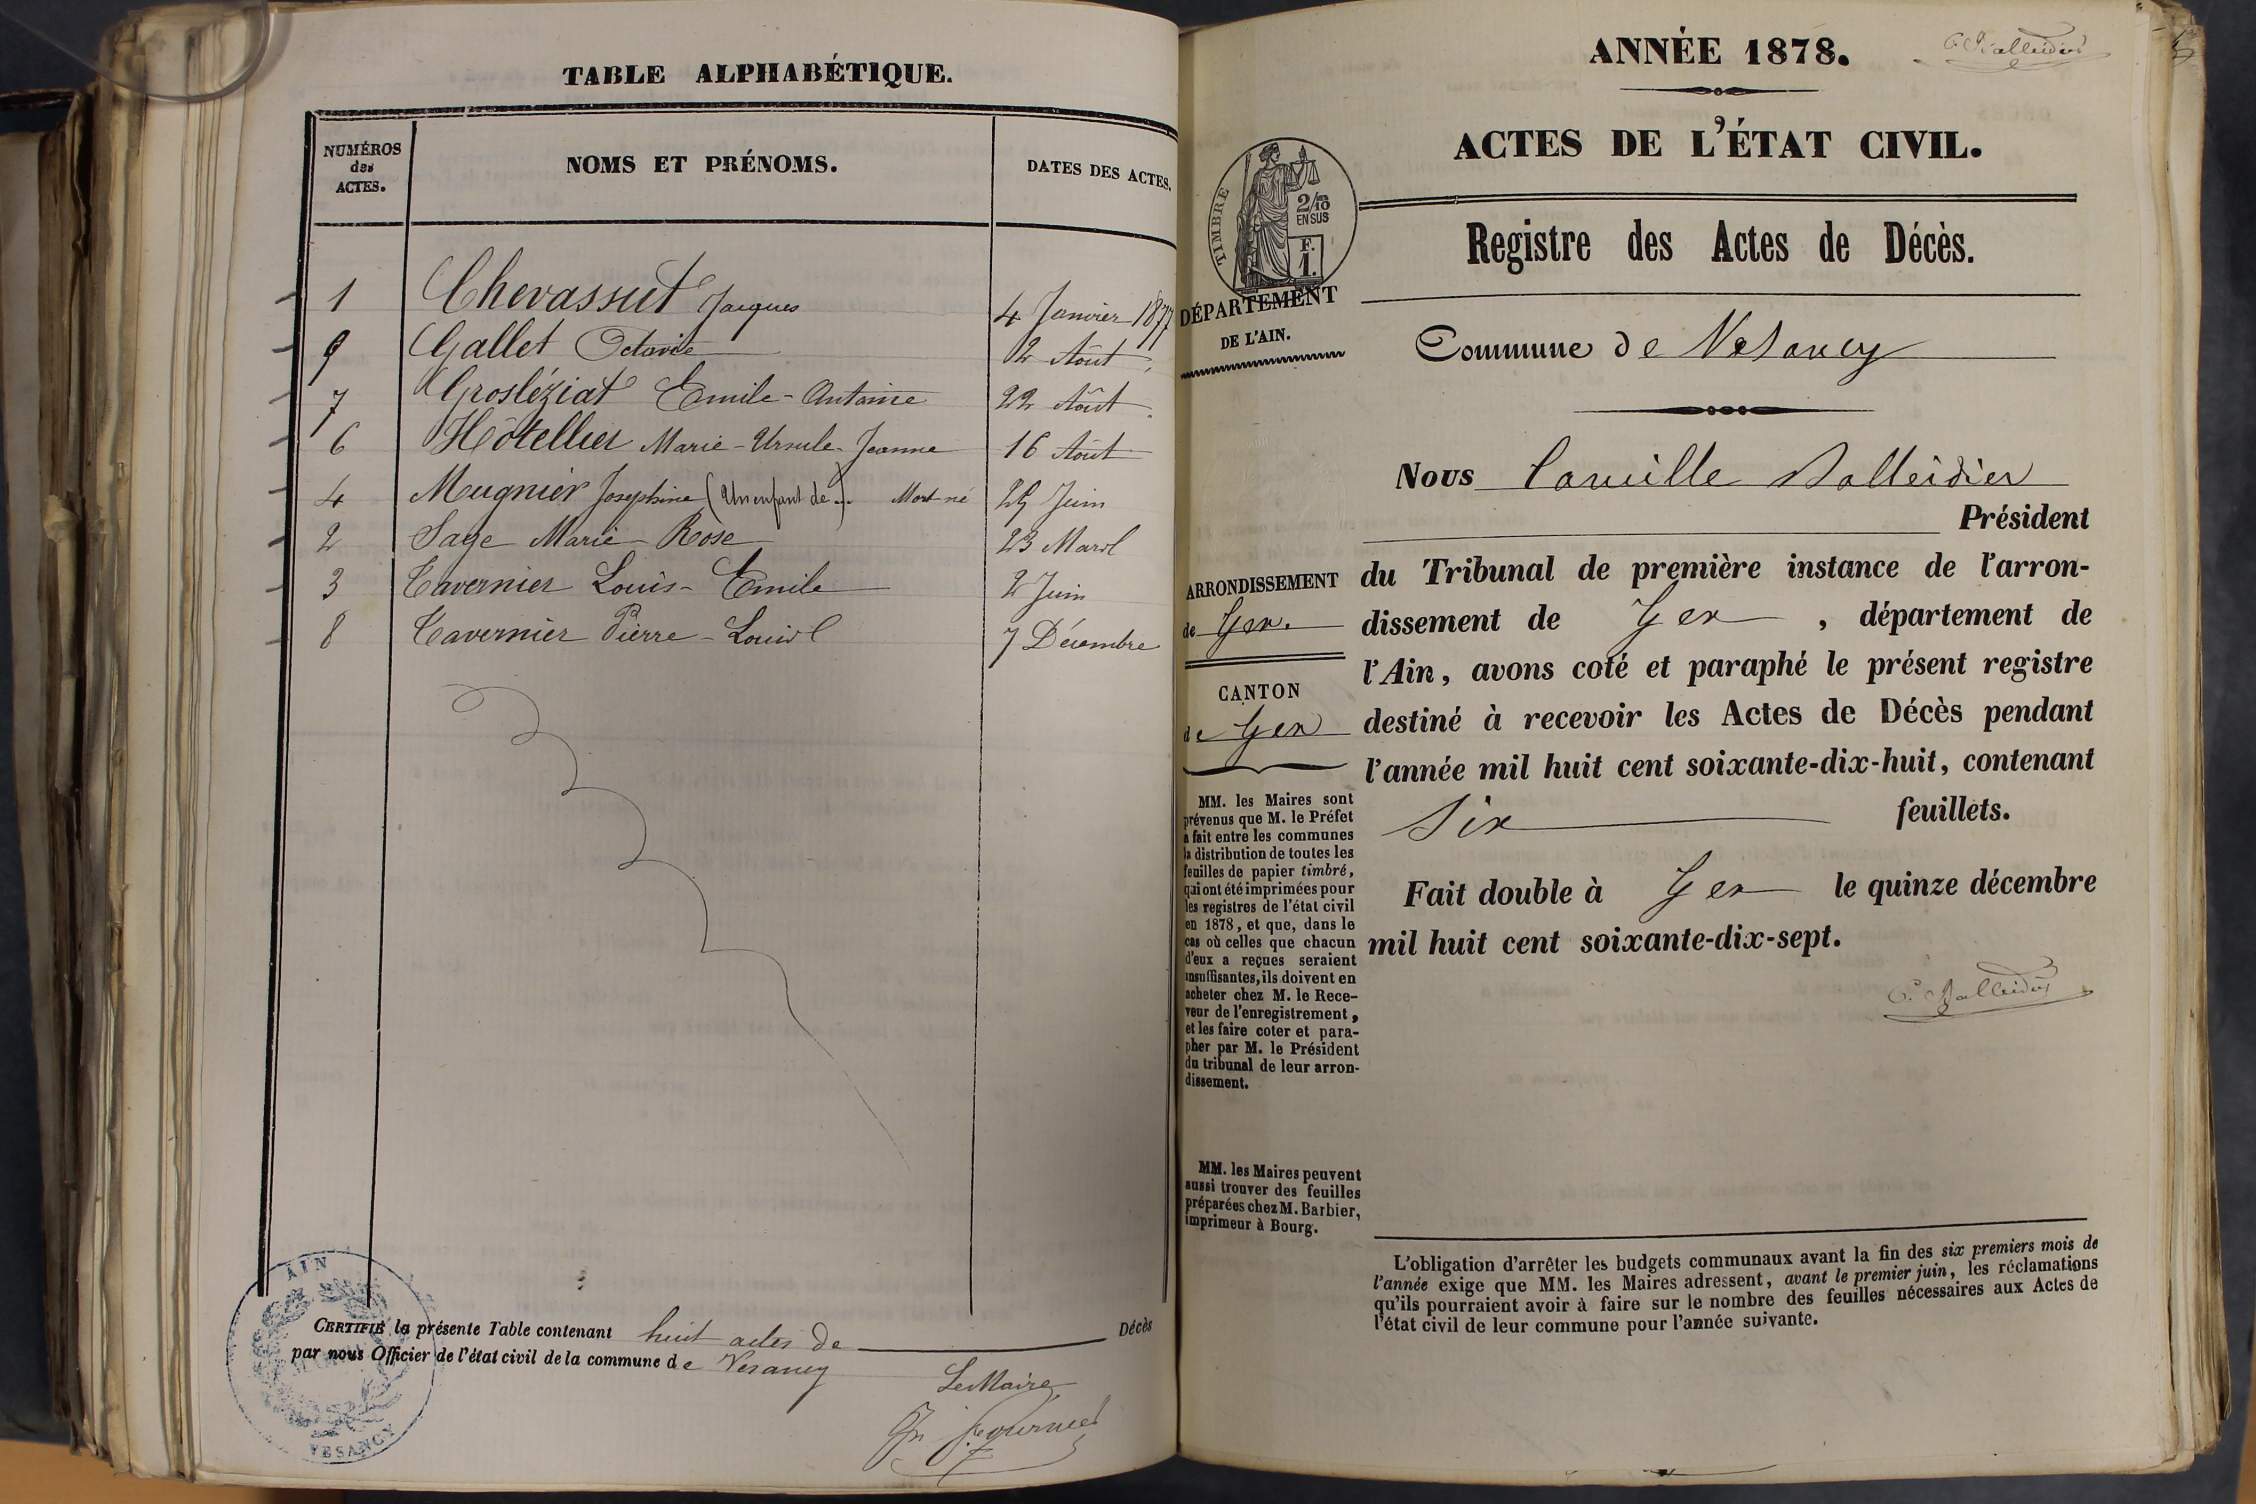 TABLE ALPHABÉTIQUE.
NUMÉROS
des
ACTES.
NOMS ET PRÉNOMS.
DATES DES ACTES.
1 Chevassut Jacques 4 Janvier 1877
9 Gallet Octavie 2 Août
7 Grosléziat Emile-Antoine 22 Août
6 Hôtellier Marie-Ursule-Jeanne 16 Août
4 Mugnier Josephine (Un enfant de ...) Mort né 25 Juin
2 Sage Marie-Rose 23 Mars
3 Tavernier Louis-Emile 2 Juin
8 Tavernier Pierre-Louis 7 Décembre
CERTIFIÉ la présente Table contenant huit actes de Décès
par nous Officier de l'état civil de la commune de Vesancy
Le Maire
AIN
VESANCY
ANNÉE 1878.
ACTES DE L'ÉTAT CIVIL.
TIMBRE
2/10
EN SUS
F.
1.
Registre des Actes de Décès.
DÉPARTEMENT
DE L'AIN.
Commune de Vesancy
Nous Camille Balleidier
Président
du Tribunal de première instance de l'arron-
dissement de Gex, département de
l'Ain, avons coté et paraphé le présent registre
destiné à recevoir les Actes de Décès pendant
l'année mil huit cent soixante-dix-huit, contenant
Six feuillets.
Fait double à Gex le quinze décembre
mil huit cent soixante-dix-sept.
C. Balleidier
ARRONDISSEMENT
de Gex.
CANTON
de Gex
MM. les Maires sont
prévenus que M. le Préfet
a fait entre les communes
la distribution de toutes les
feuilles de papier timbré,
qui ont été imprimées pour
les registres de l'état civil
en 1878, et que, dans le
cas où celles que chacun
d'eux a reçues seraient
insuffisantes, ils doivent en
acheter chez M. le Rece-
veur de l'enregistrement,
et les faire coter et para-
pher par M. le Président
du tribunal de leur arron-
dissement.
MM. les Maires peuvent
aussi trouver des feuilles
préparées chez M. Barbier,
imprimeur à Bourg.
L'obligation d'arrêter les budgets communaux avant la fin des six premiers mois de
l'année exige que MM. les Maires adressent, avant le premier juin, les réclamations
qu'ils pourraient avoir à faire sur le nombre des feuilles nécessaires aux Actes de
l'état civil de leur commune pour l'année suivante.